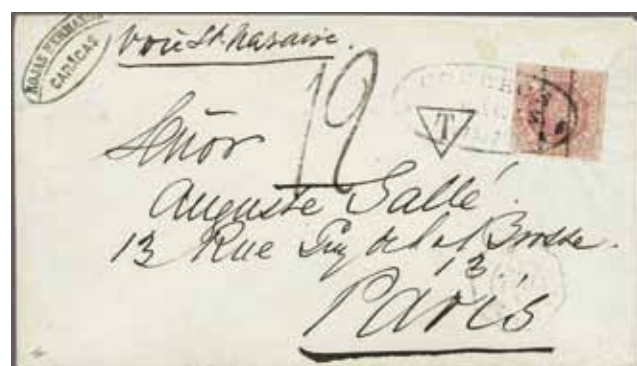 ROJAS HERMANOS
CARACAS
Voie St. Nazaire.
12
T
Señor
Auguste Sallé.
13 Rue Guy de la Brosse.
13.
Paris